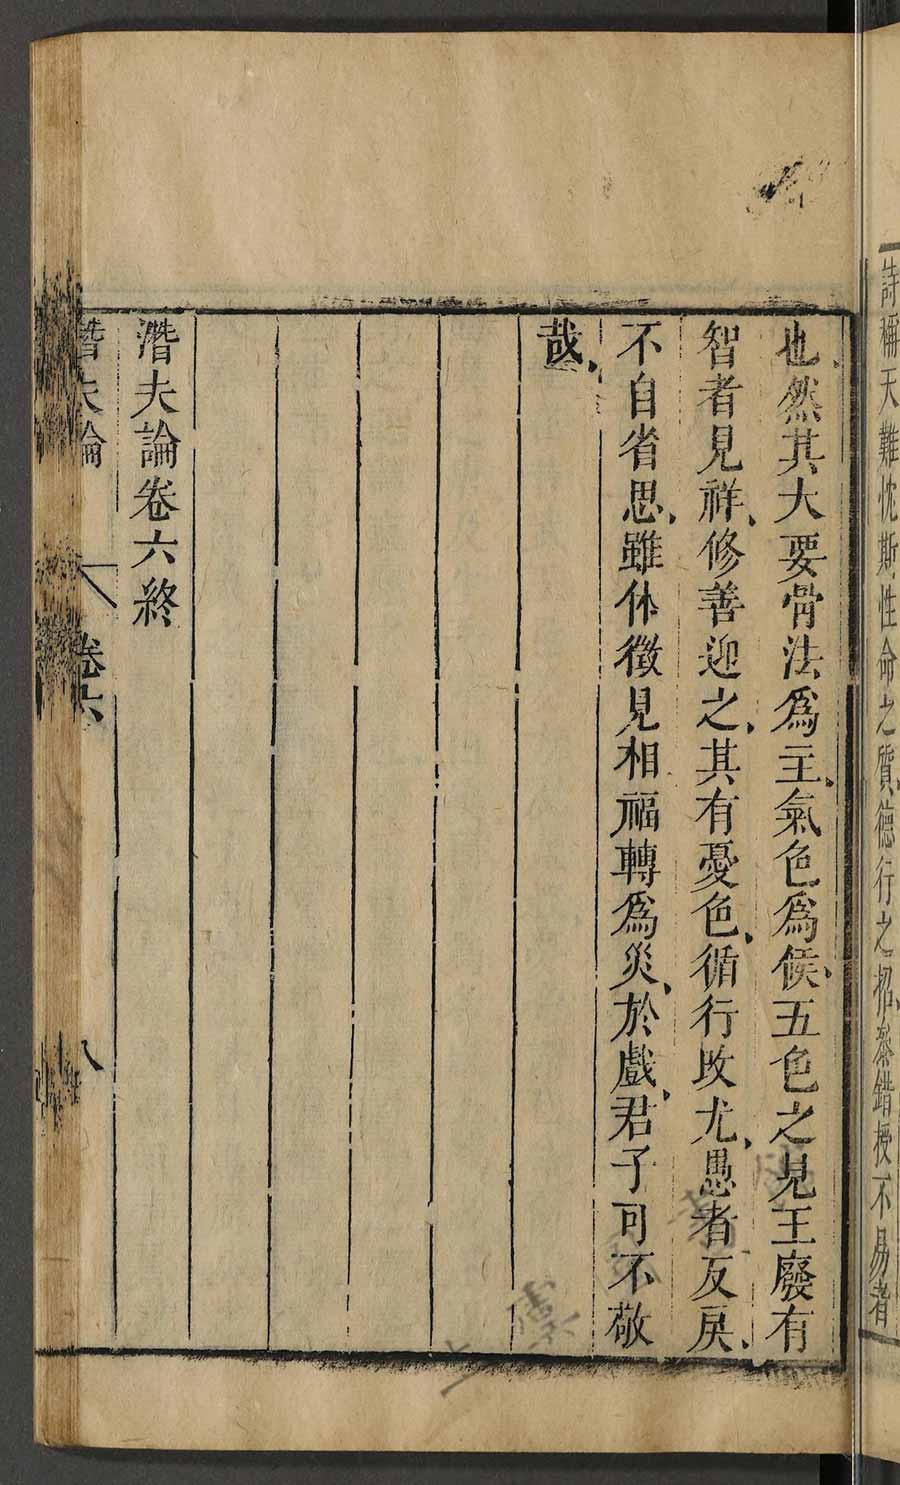 詩稱天難忱斯性命之質德行之招參錯授不易者
也然其大要骨法爲主氣色爲候五色之見王廢有
智者見祥修善迎之其有憂色循行改尤愚者反戾
不自省思雖休徵見相福轉爲災於戲君子可不敬
哉
潛夫論卷六終
潛夫論 卷六 八